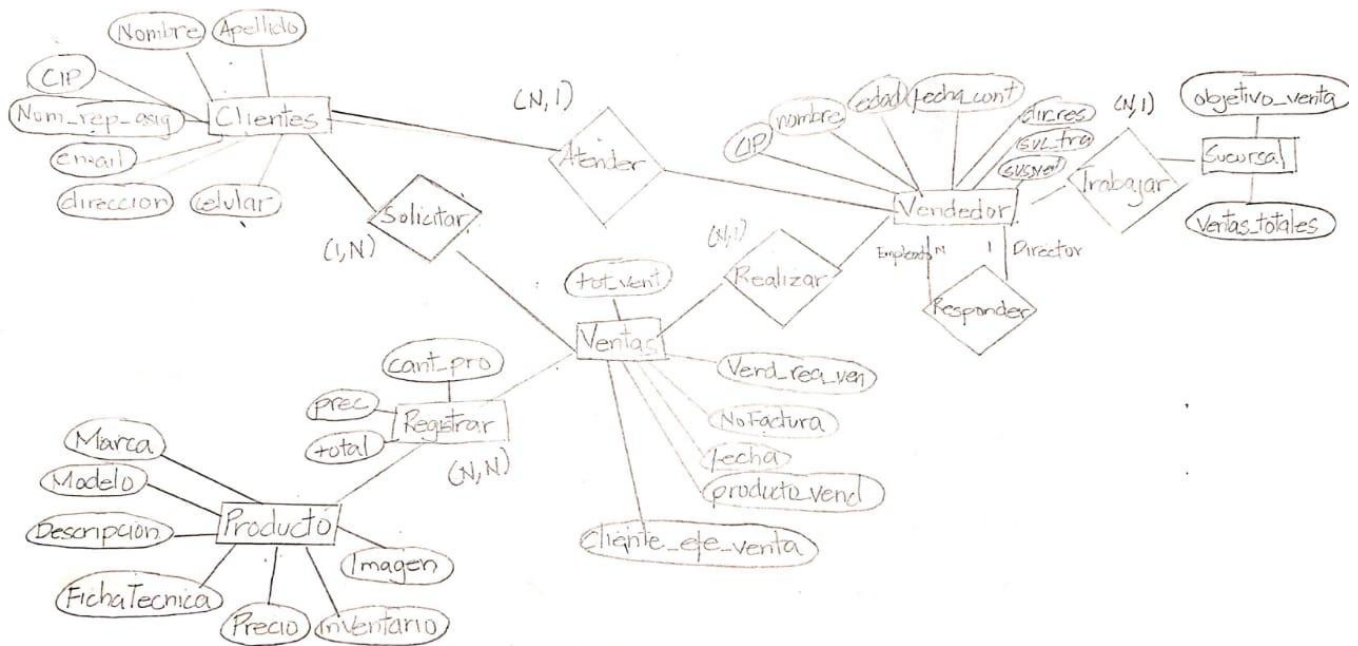 Nombre
Apellido
CIP
Nom_rep_asig
Clientes
email
direccion
celular
(N,1)
Atender
Solicitar
(1,N)
CIP
nombre
edad
fecha_cont
dir.res
suc_tra
Vendedor
(N,1)
Trabajar
objetivo_venta
Sucursal
Ventas_totales
Empleado
N
1
Director
Responder
(N,1)
Realizar
tot_vent
Ventas
Vend_rea_ven
NoFactura
fecha
producto_vend
Cliente_efe_venta
cant_pro
prec
total
Registrar
(N,N)
Marca
Modelo
Descripcion
Producto
FichaTecnica
Precio
inventario
Imagen